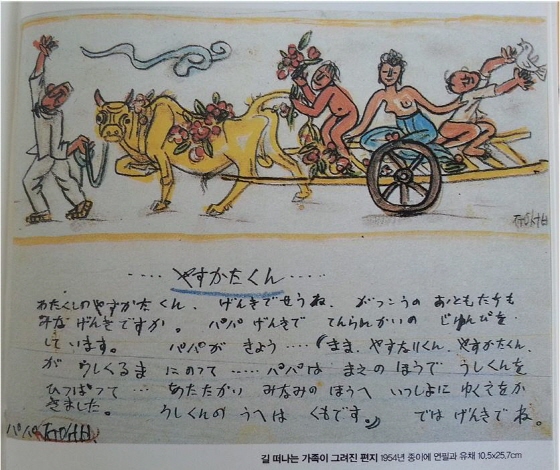 ㅈㅜㅇㅅㅓㅂ
····· やすかたくん ·····
わたくしの やすかた くん、げんきでせうね。がっこうの おともだちも
みな げんきですか。パパ げんきで てんらんかいの じゅんびを
しています。パパが きょう ····(まま、やすなりくん、やすかたくん
が うしくるま にのって ····· パパは まえの ほうで うしくんを
ひっぱって ··· あたたかい みなみの ほうへ いっしょに ゆくえをか
きました。うしくんの うへは くもです。) では げんきで ね。
パパ ㅈㅜㅇㅅㅓㅂ
길 떠나는 가족이 그려진 편지 1954년 종이에 연필과 유채 10.5x25.7cm